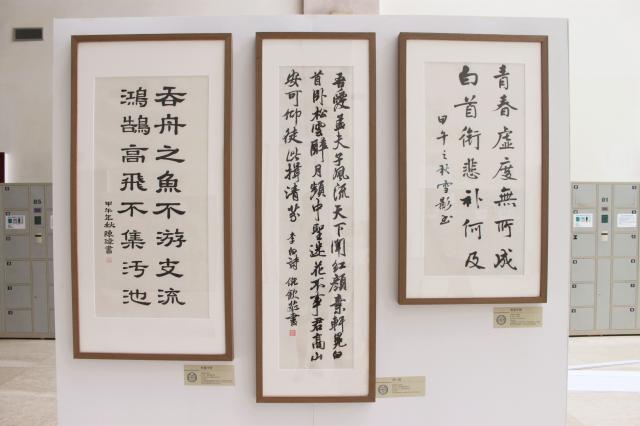 吞舟之魚不游支流
鴻鵠高飛不集汚池
甲午年秋陳瑋書
吾愛孟夫子風流天下聞紅顏棄軒冕白
首卧松雲醉月頻中聖迷花不事君高山
安可仰徒此揖清芬 李白詩
青春虛度無所成
白首銜悲補何及
甲午之秋雪影書